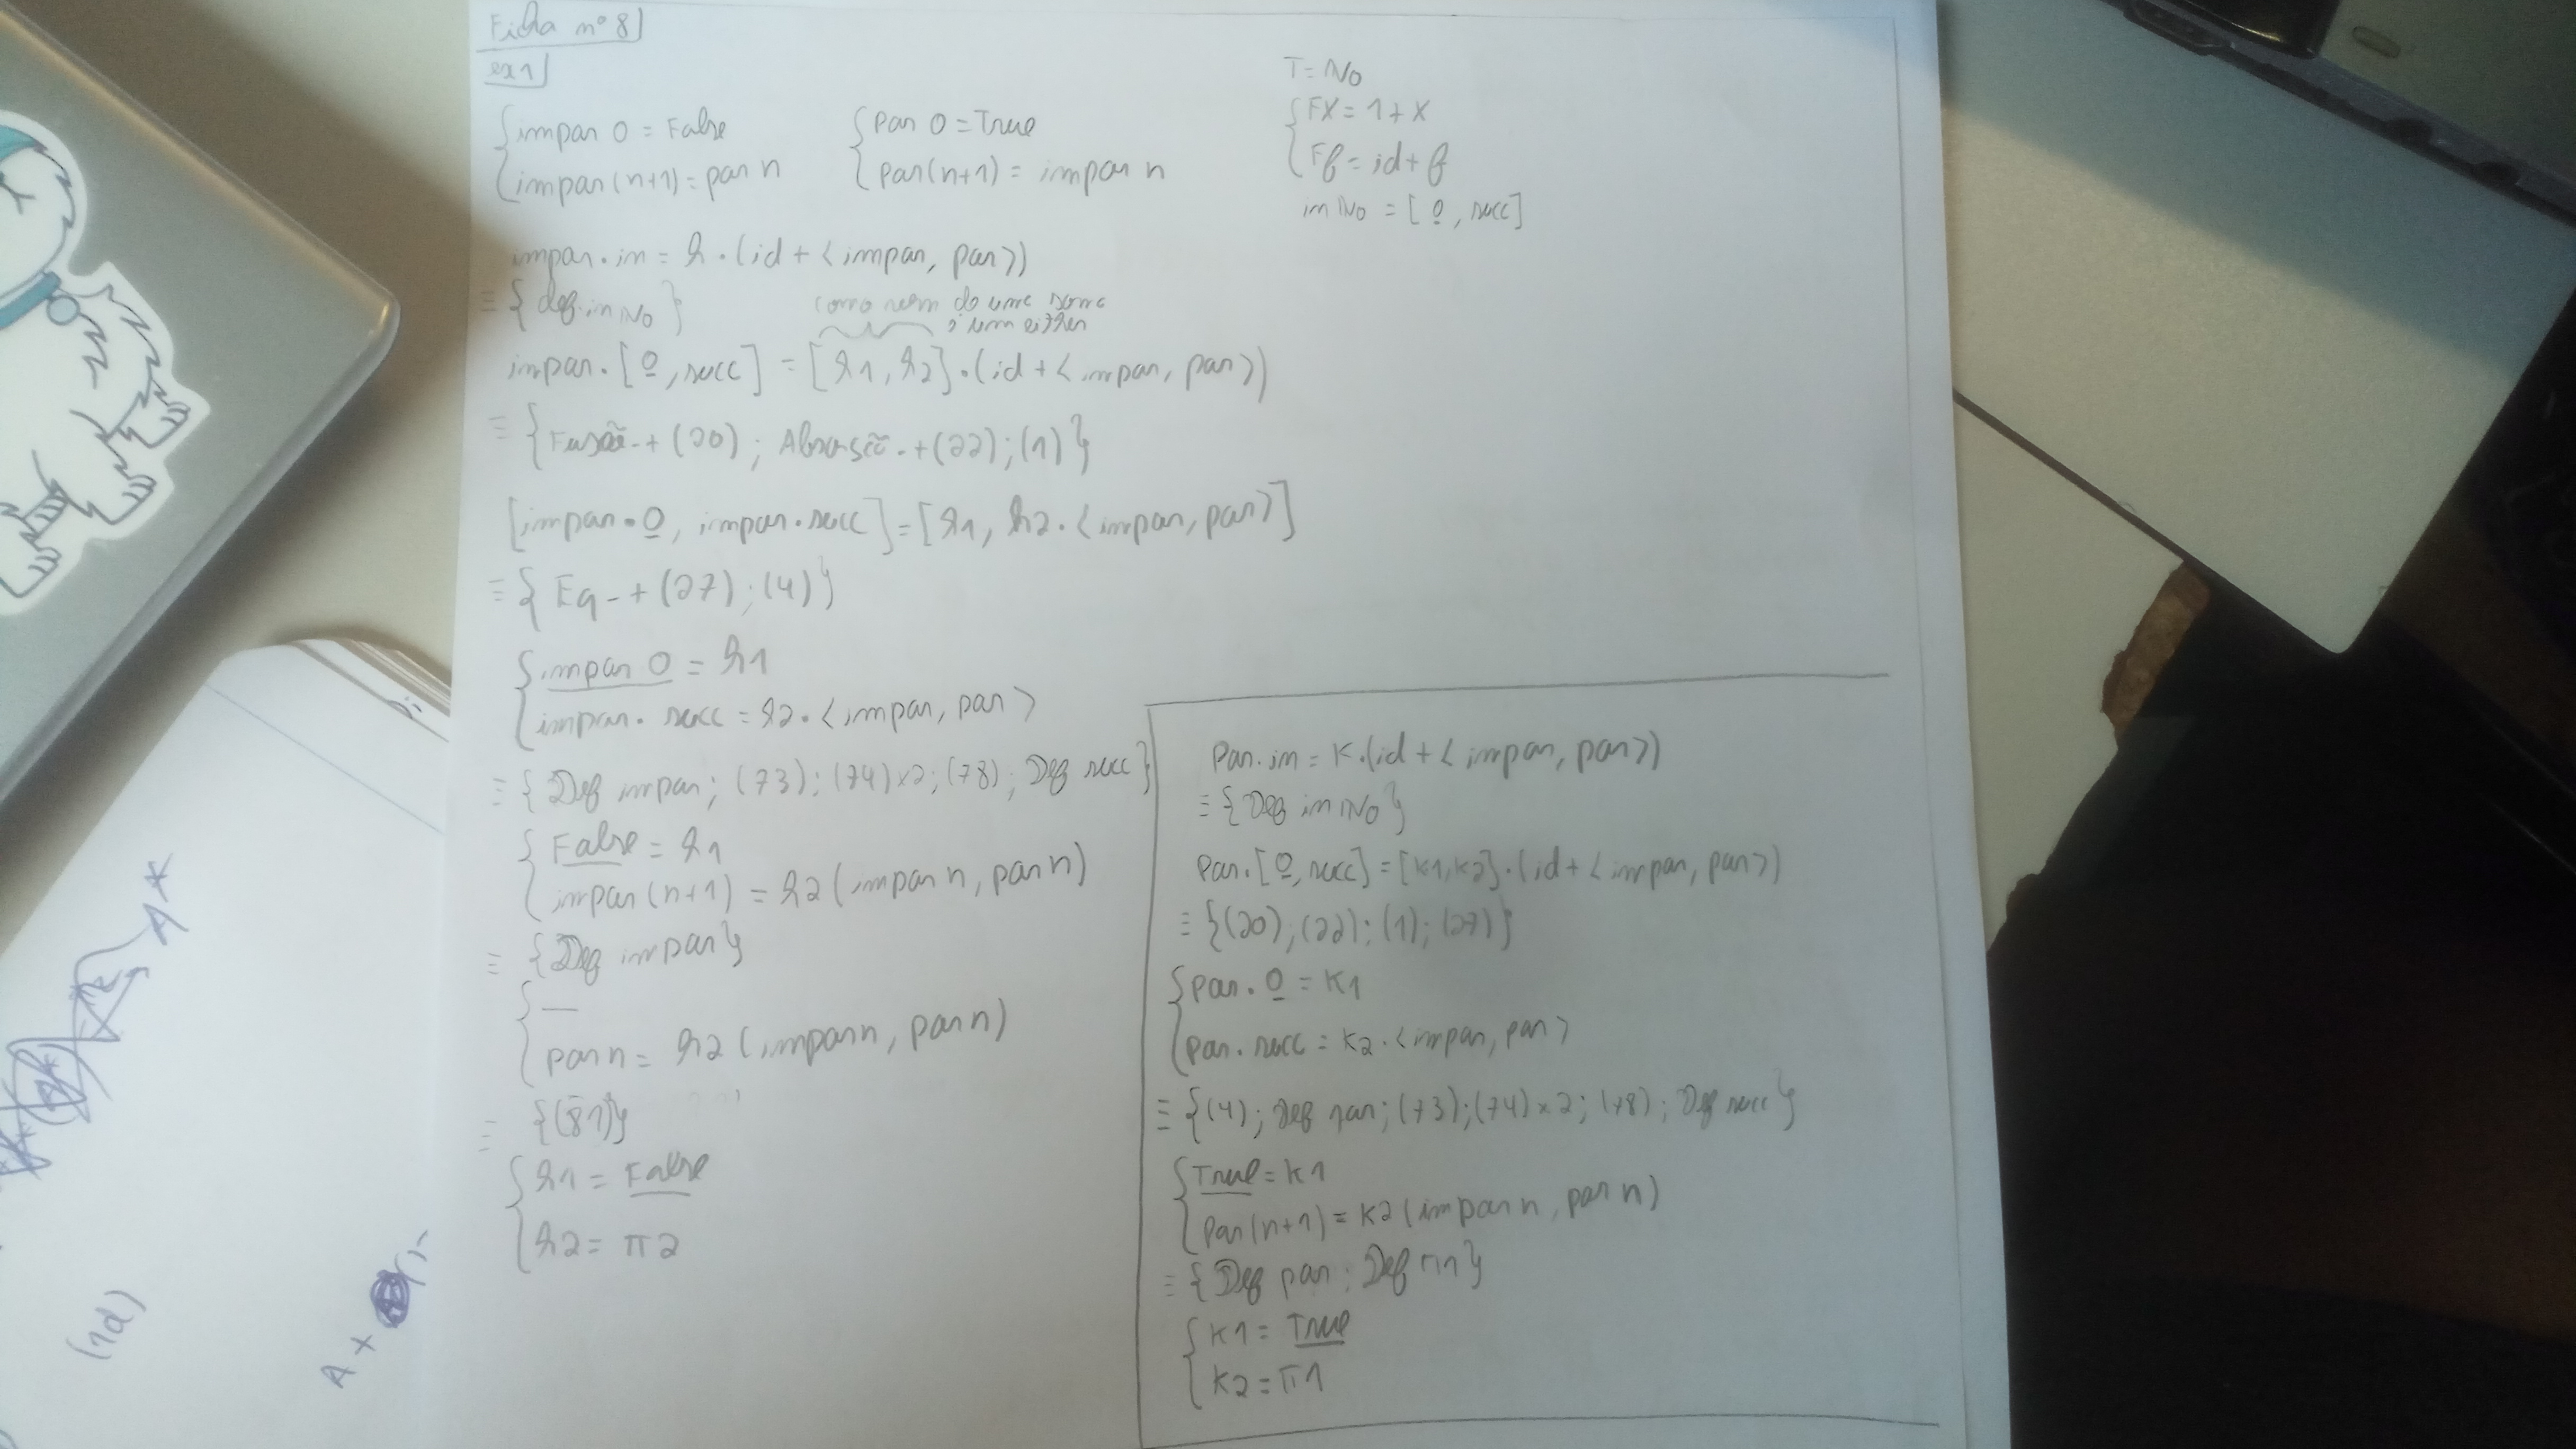 Ficha nº 8
ex1
{ impar 0 = False
impar (n+1) = par n
{ Par 0 = True
Par(n+1) = impar n
T = N0
{ FX = 1 + X
Ff = id + f
in N0 = [0, succ]
impar . in = h . (id + <impar, par>)
≡ { def. in N0 }
como vem de uma soma
é um either
impar . [0, succ] = [h1, h2] . (id + <impar, par>)
≡ { Fusão-+ (20) ; Absorção-+ (22) ; (1) }
[impar . 0, impar . succ] = [h1, h2 . <impar, par>]
≡ { Eq-+ (27) ; (4) }
{ impar 0 = h1
impar . succ = h2 . <impar, par>
≡ { Def impar ; (73) ; (74)x2 ; (78) ; Def succ }
{ False = h1
impar (n+1) = h2 (impar n, par n)
≡ { Def impar }
{ —
par n = h2 (impar n, par n)
≡ { (81) }
{ h1 = False
h2 = π2
Par . in = K . (id + <impar, par>)
≡ { Def in N0 }
Par . [0, succ] = [K1, K2] . (id + <impar, par>)
≡ { (20) ; (22) ; (1) ; (27) }
{ Par . 0 = K1
Par . succ = K2 . <impar, par>
≡ { (4) ; Def par ; (73) ; (74) x 2 ; (78) ; Def succ }
{ True = K1
Par (n+1) = K2 (impar n, par n)
≡ { Def par ; Def π1 }
{ K1 = True
K2 = π1
A*
(1d)
A +